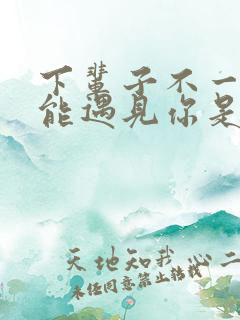 下辈子不一
能遇见你是
天地知我心二
未任同意禁止转载